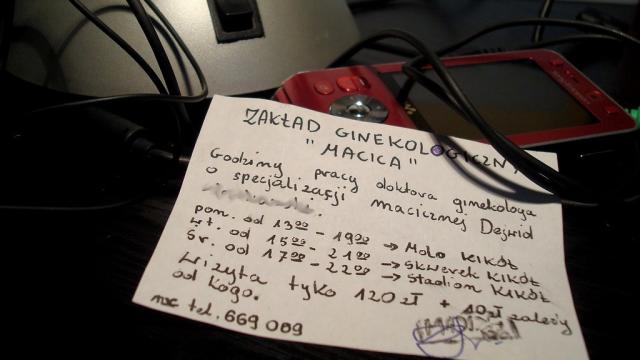 ZAKŁAD GINEKOLOGICZNY
"MACICA"
Godziny pracy doktora ginekologa
o specjalizacji macicznej Dejwid
pon. od 13⁰⁰ - 19⁰⁰ → Molo KIKÓŁ
wt. od 15⁰⁰ - 21⁰⁰ → Skwerek KIKÓŁ
śr. od 17⁰⁰ - 22⁰⁰ → Stadion KIKÓŁ
Wizyta tyko 120 zł + 10zł zależy
od kogo.
nr tel. 669 009